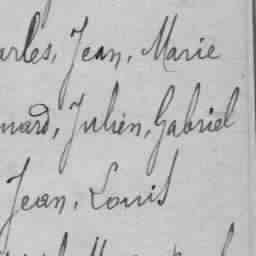 arles, Jean, Marie
nard, Julien, Gabriel
Jean, Louis